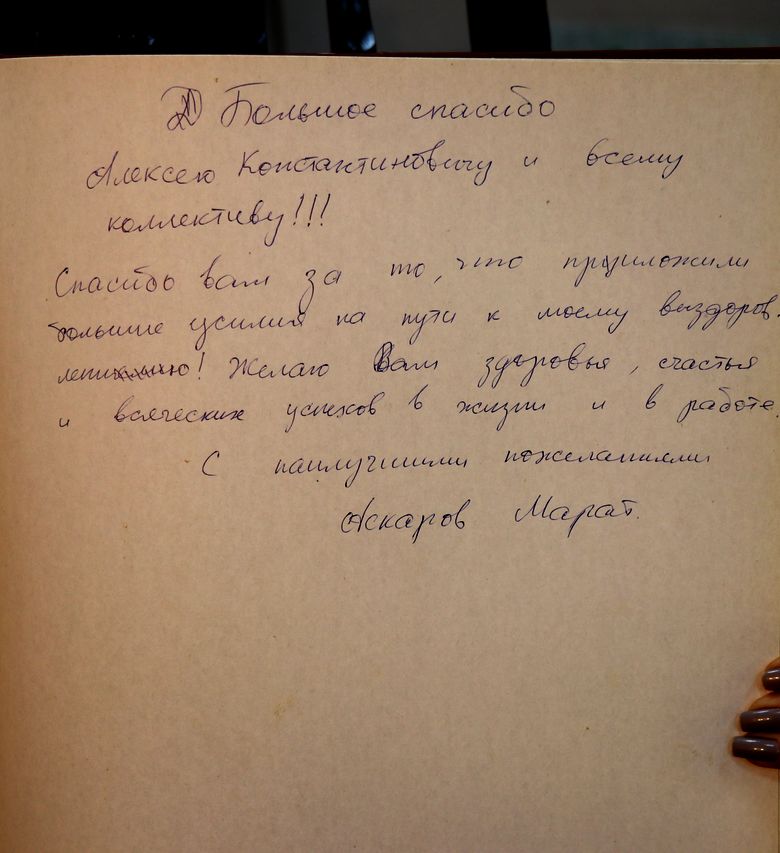 Большое спасибо
Алексею Константиновичу и всему
коллективу!!!
Спасибо вам за то, что приложили
большие усилия на пути к моему выздоров-
лению! Желаю Вам здоровья, счастья
и всяческих успехов в жизни и в работе.
С наилучшими пожеланиями
Аскаров Марат.